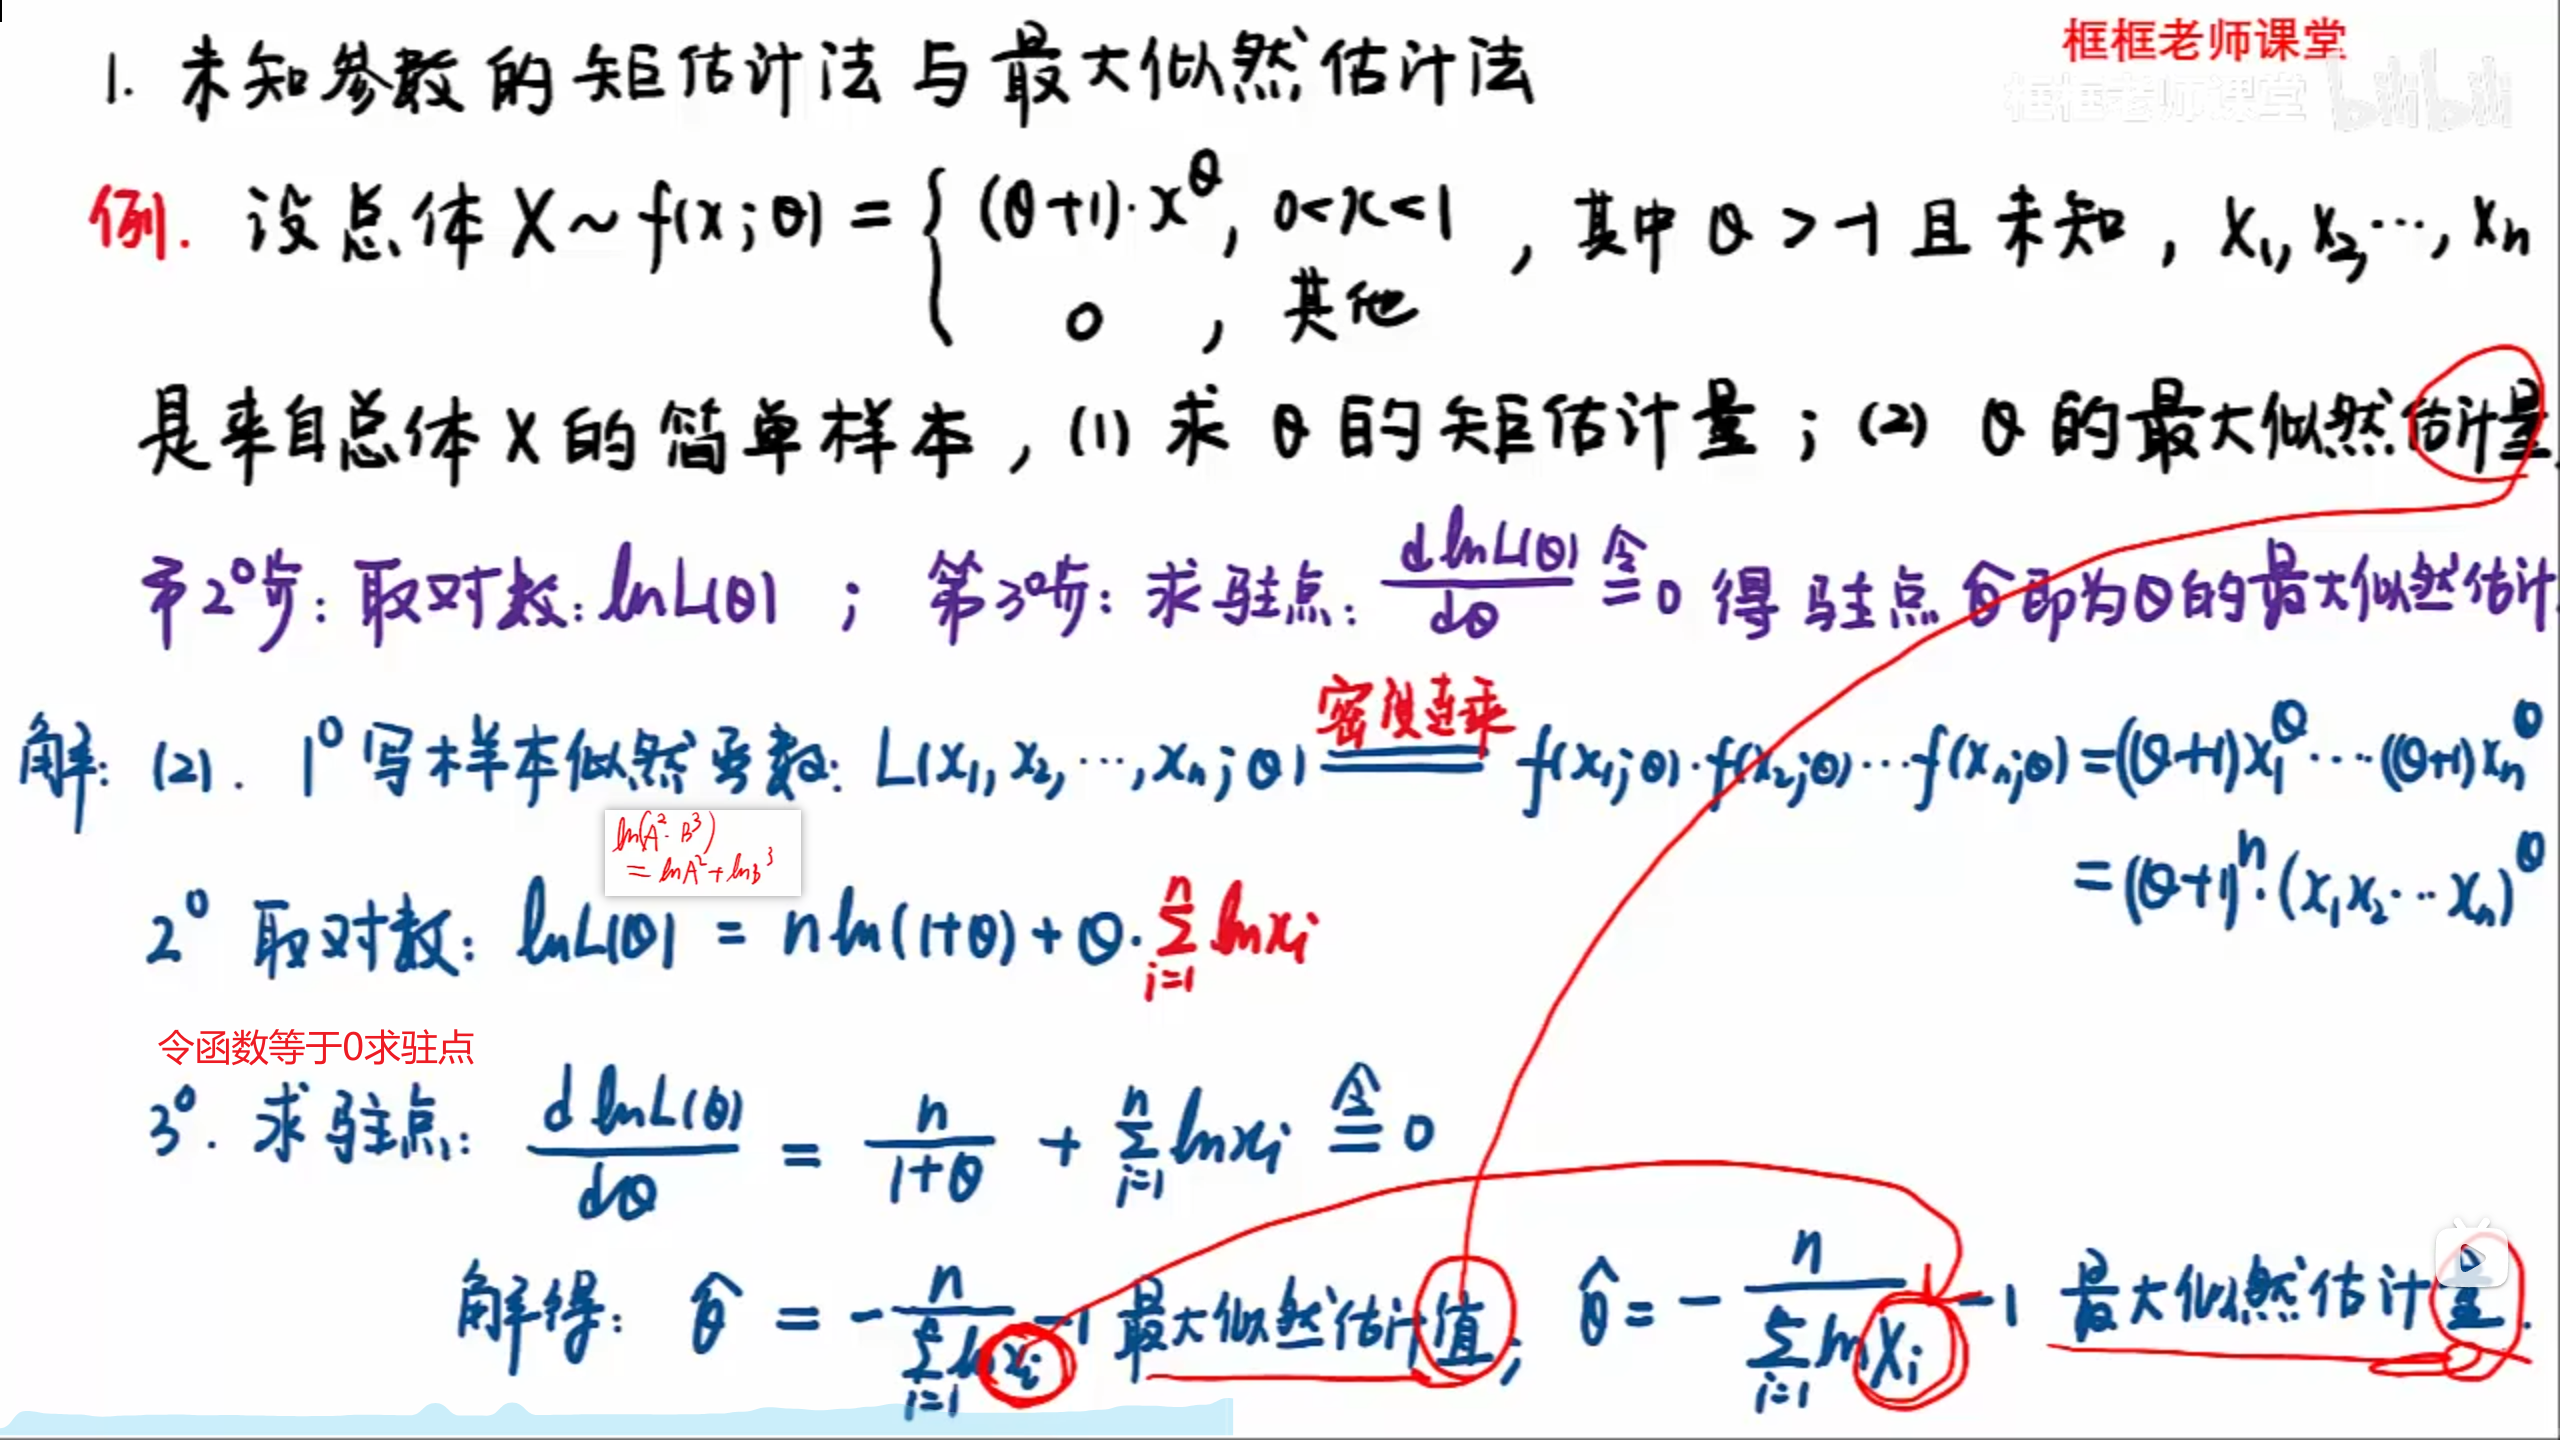 框框老师课堂
框框老师课堂 bilibili
1. 未知参数的矩估计法与最大似然估计法
例. 设总体 X ~ f(x;θ) = { (θ+1)·x^θ, 0<x<1 , 其中 θ > -1 且未知, X₁, X₂, ⋯, Xₙ
0 , 其他
是来自总体 X 的简单样本, (1) 求 θ 的矩估计量; (2) θ 的最大似然估计量.
第2⁰步: 取对数: lnL(θ) ; 第3⁰步: 求驻点: dlnL(θ)/dθ ≙ 0 得驻点 θ̂ 即为θ的最大似然估计.
令
密度连乘
解: (2). 1⁰ 写样本似然函数: L(x₁, x₂, ⋯, xₙ; θ) = f(x₁;θ)·f(x₂;θ)⋯f(xₙ;θ) = (θ+1)x₁^θ⋯(θ+1)xₙ^θ
ln(A²·B³)
= lnA²+lnB³
= (θ+1)ⁿ·(x₁x₂⋯xₙ)^θ
2⁰ 取对数: lnL(θ) = nln(1+θ) + θ·∑ᵢ₌₁ⁿ lnxᵢ
令函数等于0求驻点
令
3⁰. 求驻点: dlnL(θ)/dθ = n/(1+θ) + ∑ᵢ₌₁ⁿ lnxᵢ = 0
解得: θ̂ = -n/(∑ᵢ₌₁ⁿ lnxᵢ) -1 最大似然估计值; θ̂ = -n/(∑ᵢ₌₁ⁿ lnXᵢ) -1 最大似然估计量.